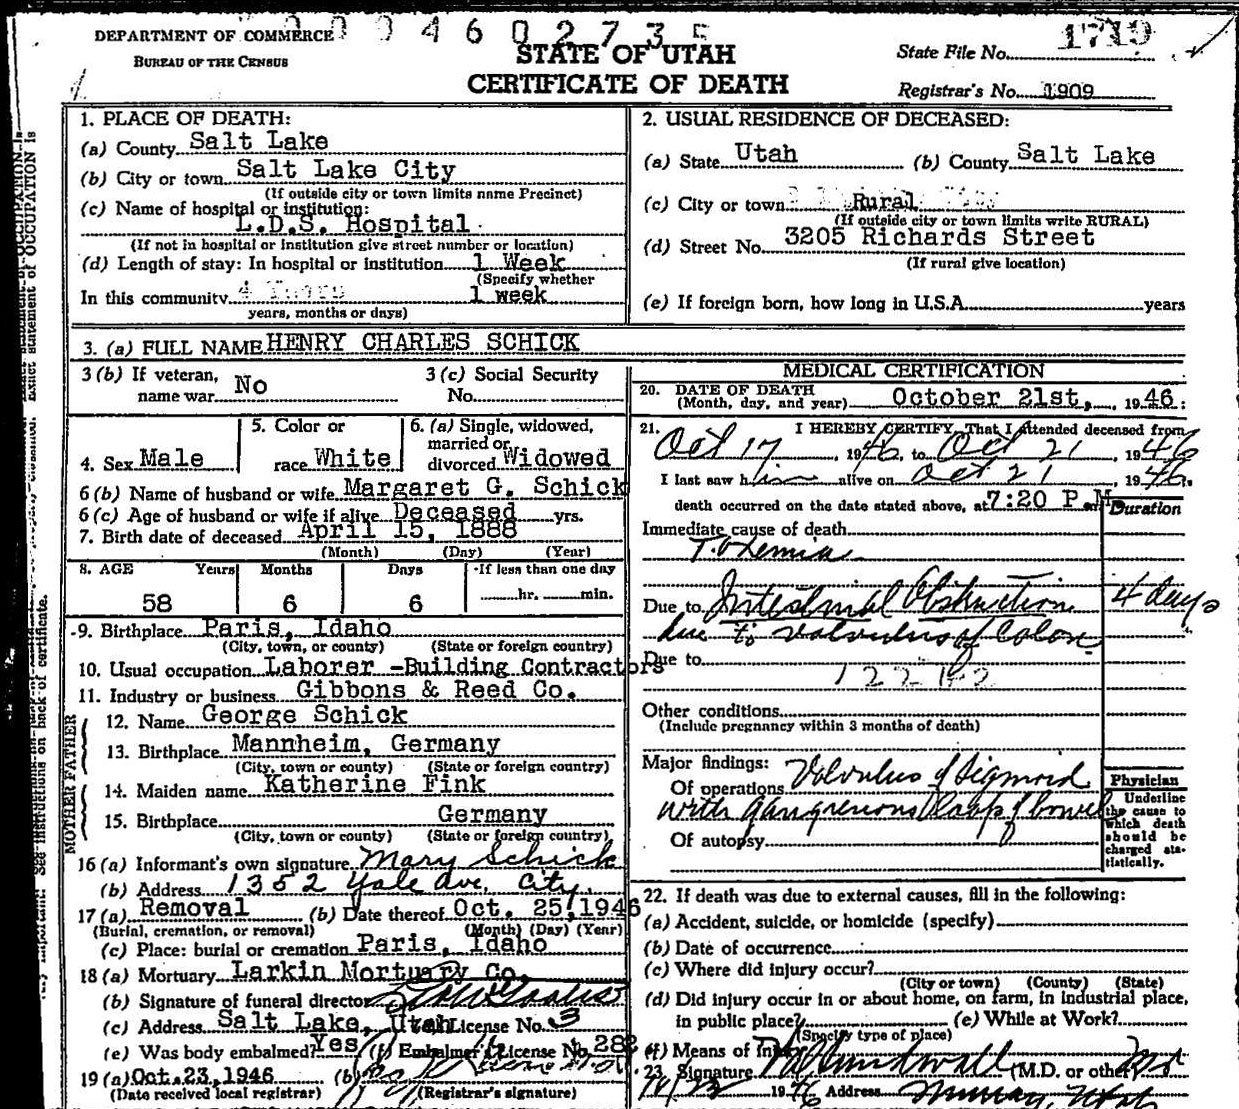 0 0 4 6 0 2 7 3 5
DEPARTMENT OF COMMERCE
BUREAU OF THE CENSUS
STATE OF UTAH
CERTIFICATE OF DEATH
State File No. 1719
Registrar's No. 1909
1. PLACE OF DEATH:
(a) County Salt Lake
(b) City or town Salt Lake City
(If outside city or town limits name Precinct)
(c) Name of hospital or institution:
L.D.S. Hospital
(If not in hospital or institution give street number or location)
(d) Length of stay: In hospital or institution 1 Week
(Specify whether
In this community 4 Years 1 week
years, months or days)
2. USUAL RESIDENCE OF DECEASED:
(a) State Utah (b) County Salt Lake
(c) City or town Rural
(If outside city or town limits write RURAL)
(d) Street No. 3205 Richards Street
(If rural give location)
(e) If foreign born, how long in U.S.A. years
3. (a) FULL NAME HENRY CHARLES SCHICK
3 (b) If veteran, name war No
3 (c) Social Security No.
4. Sex Male
5. Color or race White
6. (a) Single, widowed, married or divorced Widowed
6 (b) Name of husband or wife Margaret G. Schick
6 (c) Age of husband or wife if alive Deceased yrs.
7. Birth date of deceased April 15, 1888
(Month) (Day) (Year)
8. AGE Years Months Days If less than one day
58 6 6 hr. min.
9. Birthplace Paris, Idaho
(City, town, or county) (State or foreign country)
10. Usual occupation Laborer -Building Contractors
11. Industry or business Gibbons & Reed Co.
FATHER
12. Name George Schick
13. Birthplace Mannheim, Germany
(City, town or county) (State or foreign country)
MOTHER
14. Maiden name Katherine Fink
15. Birthplace Germany
(City, town or county) (State or foreign country)
16 (a) Informant's own signature Mary Schick
(b) Address 1352 Yale Ave. City.
17 (a) Removal (b) Date thereof Oct. 25, 1946
(Burial, cremation, or removal) (Month) (Day) (Year)
(c) Place: burial or cremation Paris, Idaho
18 (a) Mortuary Larkin Mortuary Co.
(b) Signature of funeral director
(c) Address Salt Lake, Utah License No. 3
(e) Was body embalmed? Yes (f) Embalmer's License No. 282
19 (a) Oct.23,1946 (b)
(Date received local registrar) (Registrar's signature)
MEDICAL CERTIFICATION
20. DATE OF DEATH
(Month, day, and year) October 21st, 1946
21. I HEREBY CERTIFY, That I attended deceased from
Oct 17, 1946, to Oct 21, 1946
I last saw him alive on Oct 21, 1946.
death occurred on the date stated above, at 7:20 P.M.
Duration
Immediate cause of death
Toxemia
Due to Intestinal Obstruction 4 days
due to volvulus of Colon.
Due to
122
Other conditions
(Include pregnancy within 3 months of death)
Major findings:
Of operations Volvulus of Sigmoid
with gangrenous loop of bowel
Of autopsy
Physician
Underline
the cause to
which death
should be
charged sta-
tistically.
22. If death was due to external causes, fill in the following:
(a) Accident, suicide, or homicide (specify)
(b) Date of occurrence
(c) Where did injury occur?
(City or town) (County) (State)
(d) Did injury occur in or about home, on farm, in industrial place,
in public place? (e) While at Work?
(Specify type of place)
(f) Means of Injury
23. Signature (M.D. or other)
1946 Address Murray, Utah